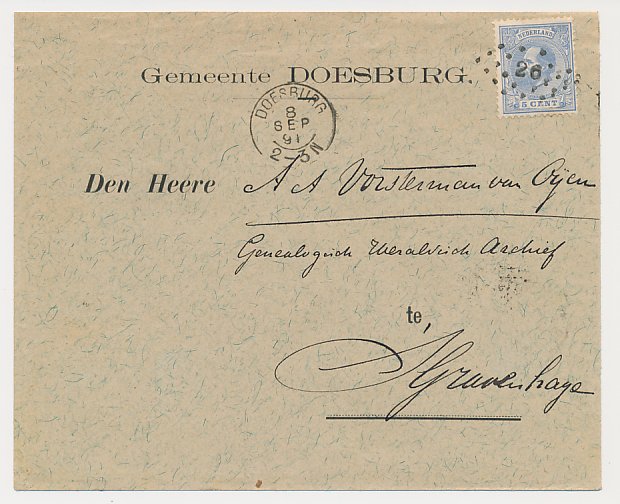 NEDERLAND
26
5 CENT
Gemeente DOESBURG.
DOESBURG
8
SEP
91
2-3N
Den Heere A A Vorsterman van Oijen
Genealogisch Heraldisch Archief
te,
s'Gravenhage